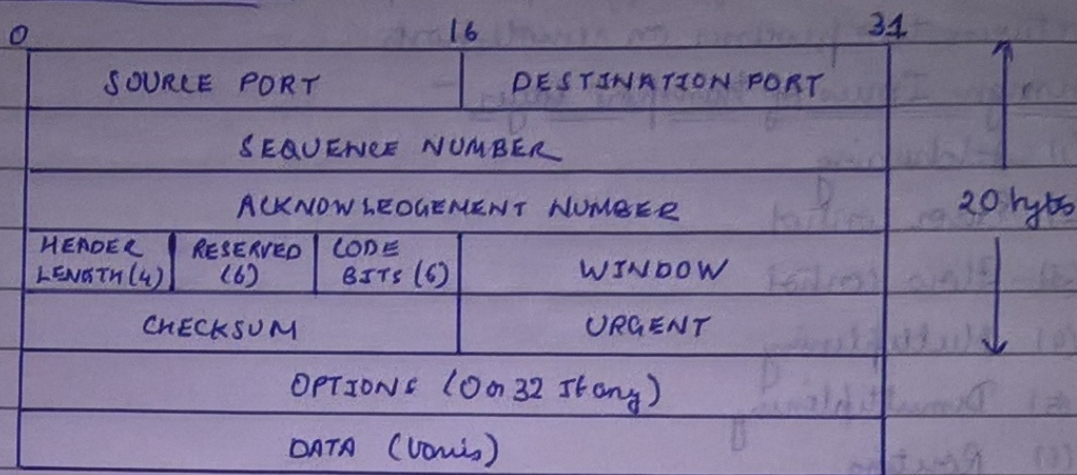 0 16 31
SOURCE PORT DESTINATION PORT
SEQUENCE NUMBER
ACKNOWLEDGEMENT NUMBER 20 bytes
HEADER RESERVED CODE
LENGTH (4) (6) BITS (6) WINDOW
CHECKSUM URGENT
OPTIONS (0 or 32 If any)
DATA (Varies)